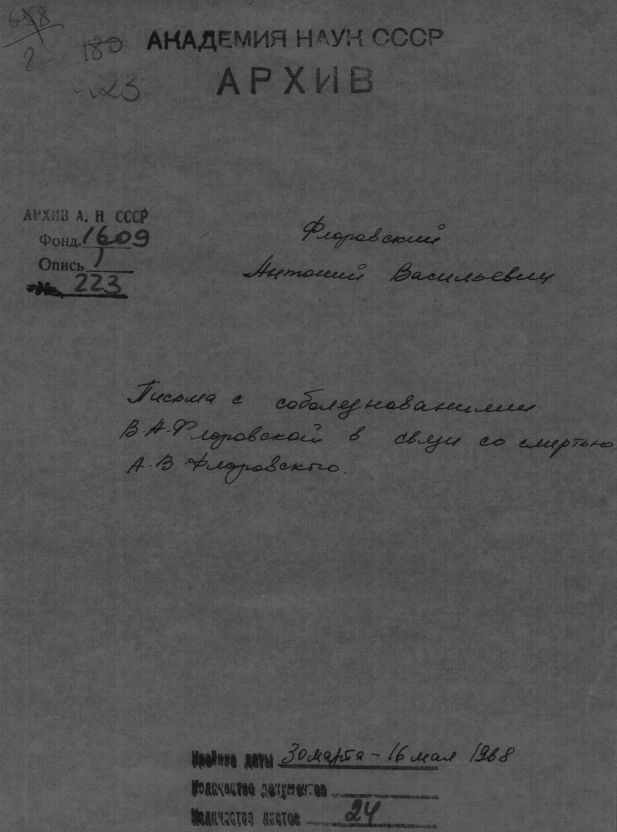 658
2
180
223
АКАДЕМИЯ НАУК СССР
АРХИВ
АРХИВ А. Н СССР
Фонд. 1609
Опись 1
№ 223
Флоровский
Антоний Васильевич
Письма с соболезнованиями
В.А.Флоровской в связи со смертью
А.В.Флоровского.
Крайние даты 30 марта – 16 мая 1968
Количество документов
Количество листов 24